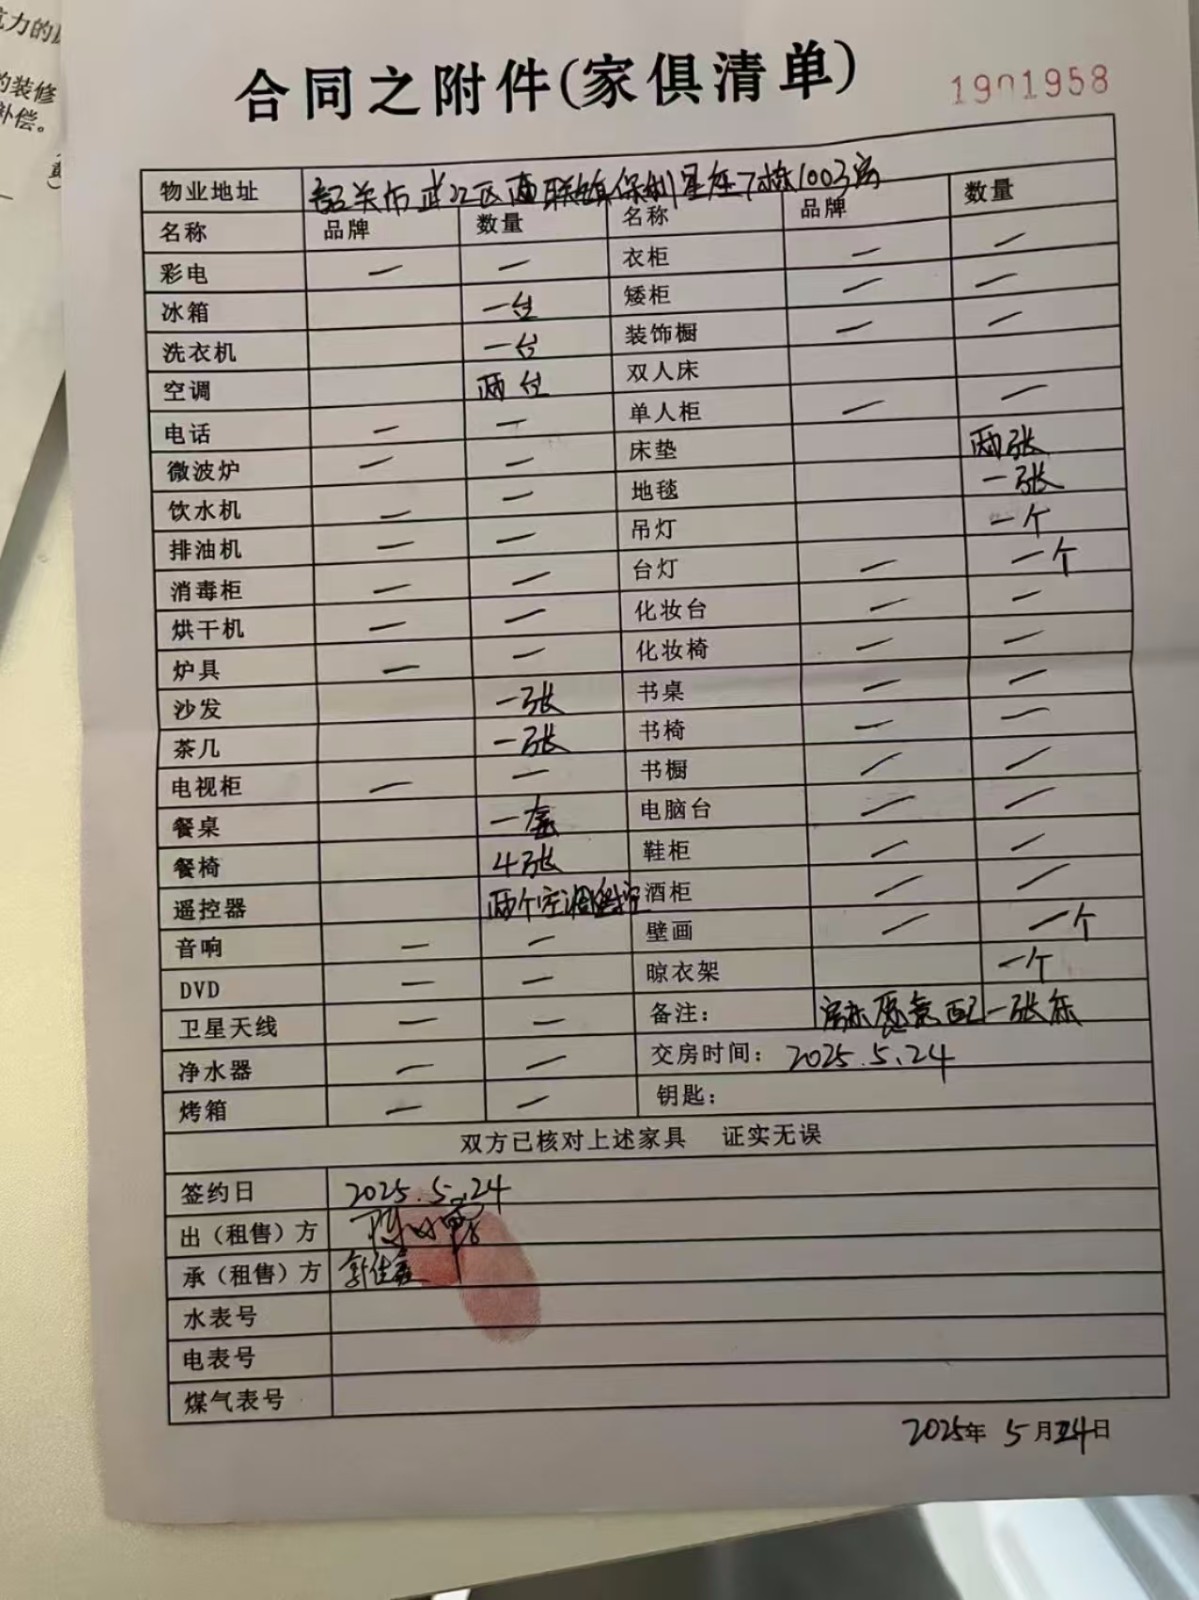 力的
的装修
补偿。
合同之附件(家俱清单)
1901958
物业地址 韶关市武江区西联镇保利星座7栋1003房
名称 品牌 数量 名称 品牌 数量
彩电 一 一 衣柜 一 一
冰箱 一台 矮柜 一 一
洗衣机 一台 装饰橱 一 一
空调 两台 双人床
电话 一 一 单人柜 一 一
微波炉 一 一 床垫 两张
饮水机 一 一 地毯 一张
排油机 一 一 吊灯 一个
消毒柜 一 一 台灯 一 一个
烘干机 一 一 化妆台 一 一
炉具 一 一 化妆椅 一 一
沙发 一张 书桌 一 一
茶几 一张 书椅 一 一
电视柜 一 一 书橱 一 一
餐桌 一套 电脑台 一 一
餐椅 4张 鞋柜 一 一
遥控器 两个空调遥控 酒柜 一 一
音响 一 一 壁画 一 一个
DVD 一 一 晾衣架 一个
卫星天线 一 一 备注: 房东愿意配一张床
净水器 一 一 交房时间: 2025.5.24
烤箱 一 一 钥匙:
双方已核对上述家具 证实无误
签约日 2025.5.24
出（租售）方
承（租售）方
水表号
电表号
煤气表号
2025年 5月24日